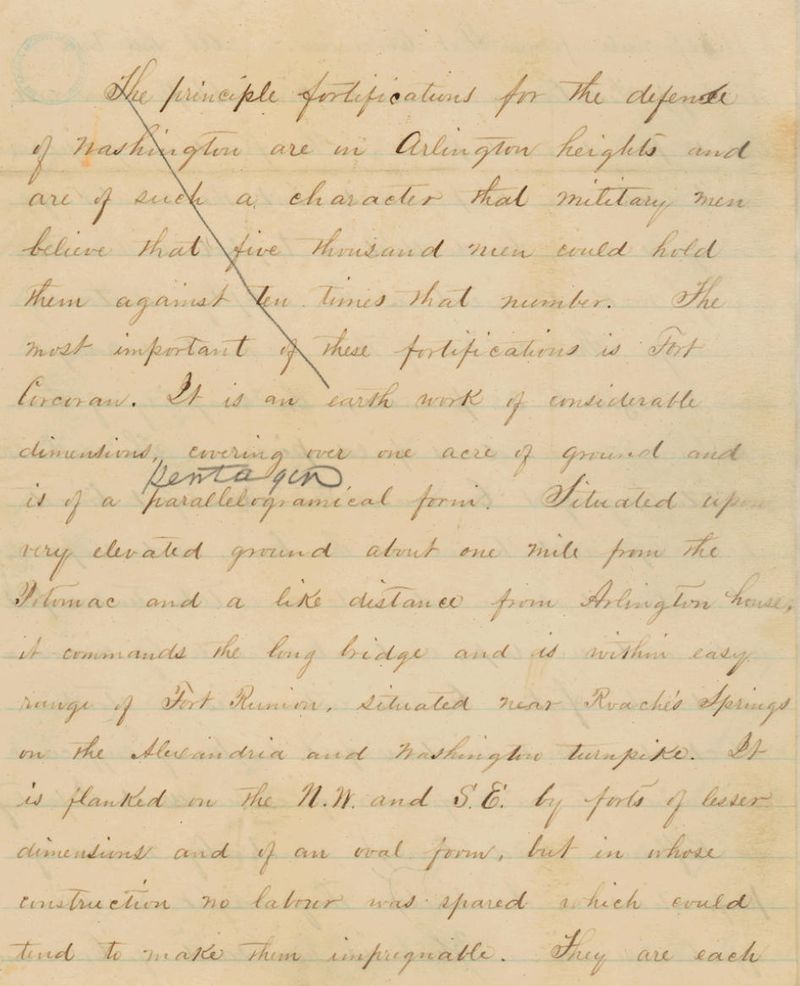 The principle fortifications for the defence
of Washington are in Arlington heights and
are of such a character that military men
believe that five thousand men could hold
them against ten times that number. The
most important of these fortifications is Fort
Corcoran. It is an earth work of considerable
dimensions, covering over one acre of ground and
Pentagon
is of a parallelogramical form. Situated upon
very elevated ground about one mile from the
Potomac and a like distance from Arlington house,
it commands the long bridge and is within easy
range of Fort Runion, situated near Roache's Springs
on the Alexandria and Washington turnpike. It
is flanked on the N.W. and S.E. by forts of lesser
dimensions and of an oval form, but in whose
construction no labour was spared which could
tend to make them impregnable. They are each